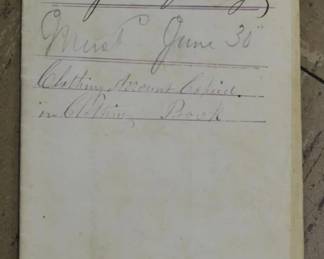 Must June 30"
Clothing Account Copied.
in Clothing Book